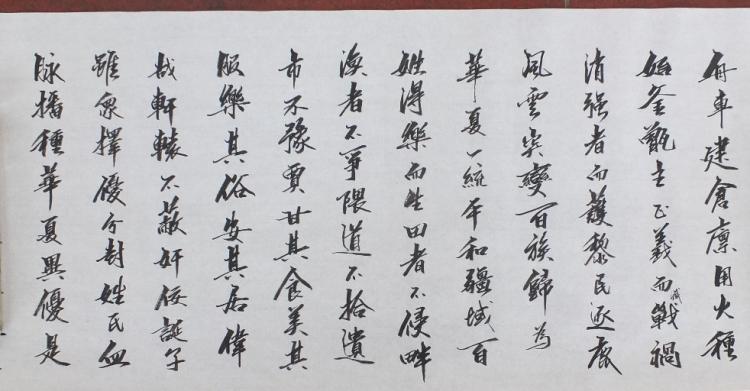 舟車建倉廪用火種
始釜甑主正義而戰禍
消强者而護黎民逐鹿
風雲突變百族歸為
華夏一統平和疆域百
姓得樂而生田者不侵畔
漁者不爭隈道不拾遺
市不豫賈甘其食美其
服樂其俗安其居偉
哉軒轅不蔽奸佞誕子
雖衆擇優分封姓氏血
脉播種華夏異優是